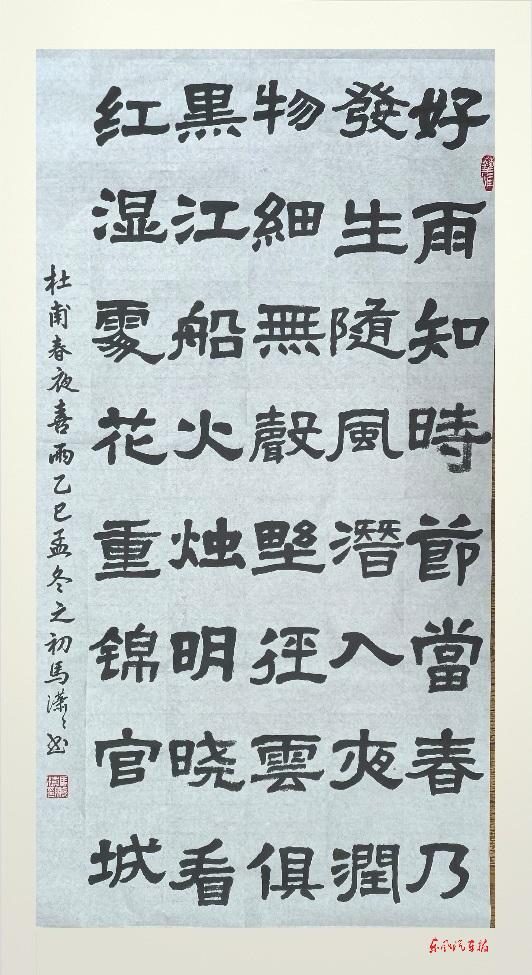 好雨知時節當春乃
發生随風潛入夜潤
物細無聲野徑雲俱
黑江船火烛明晓看
红湿處花重锦官城
杜甫春夜喜雨乙巳孟冬之初馬书
东风汽车报